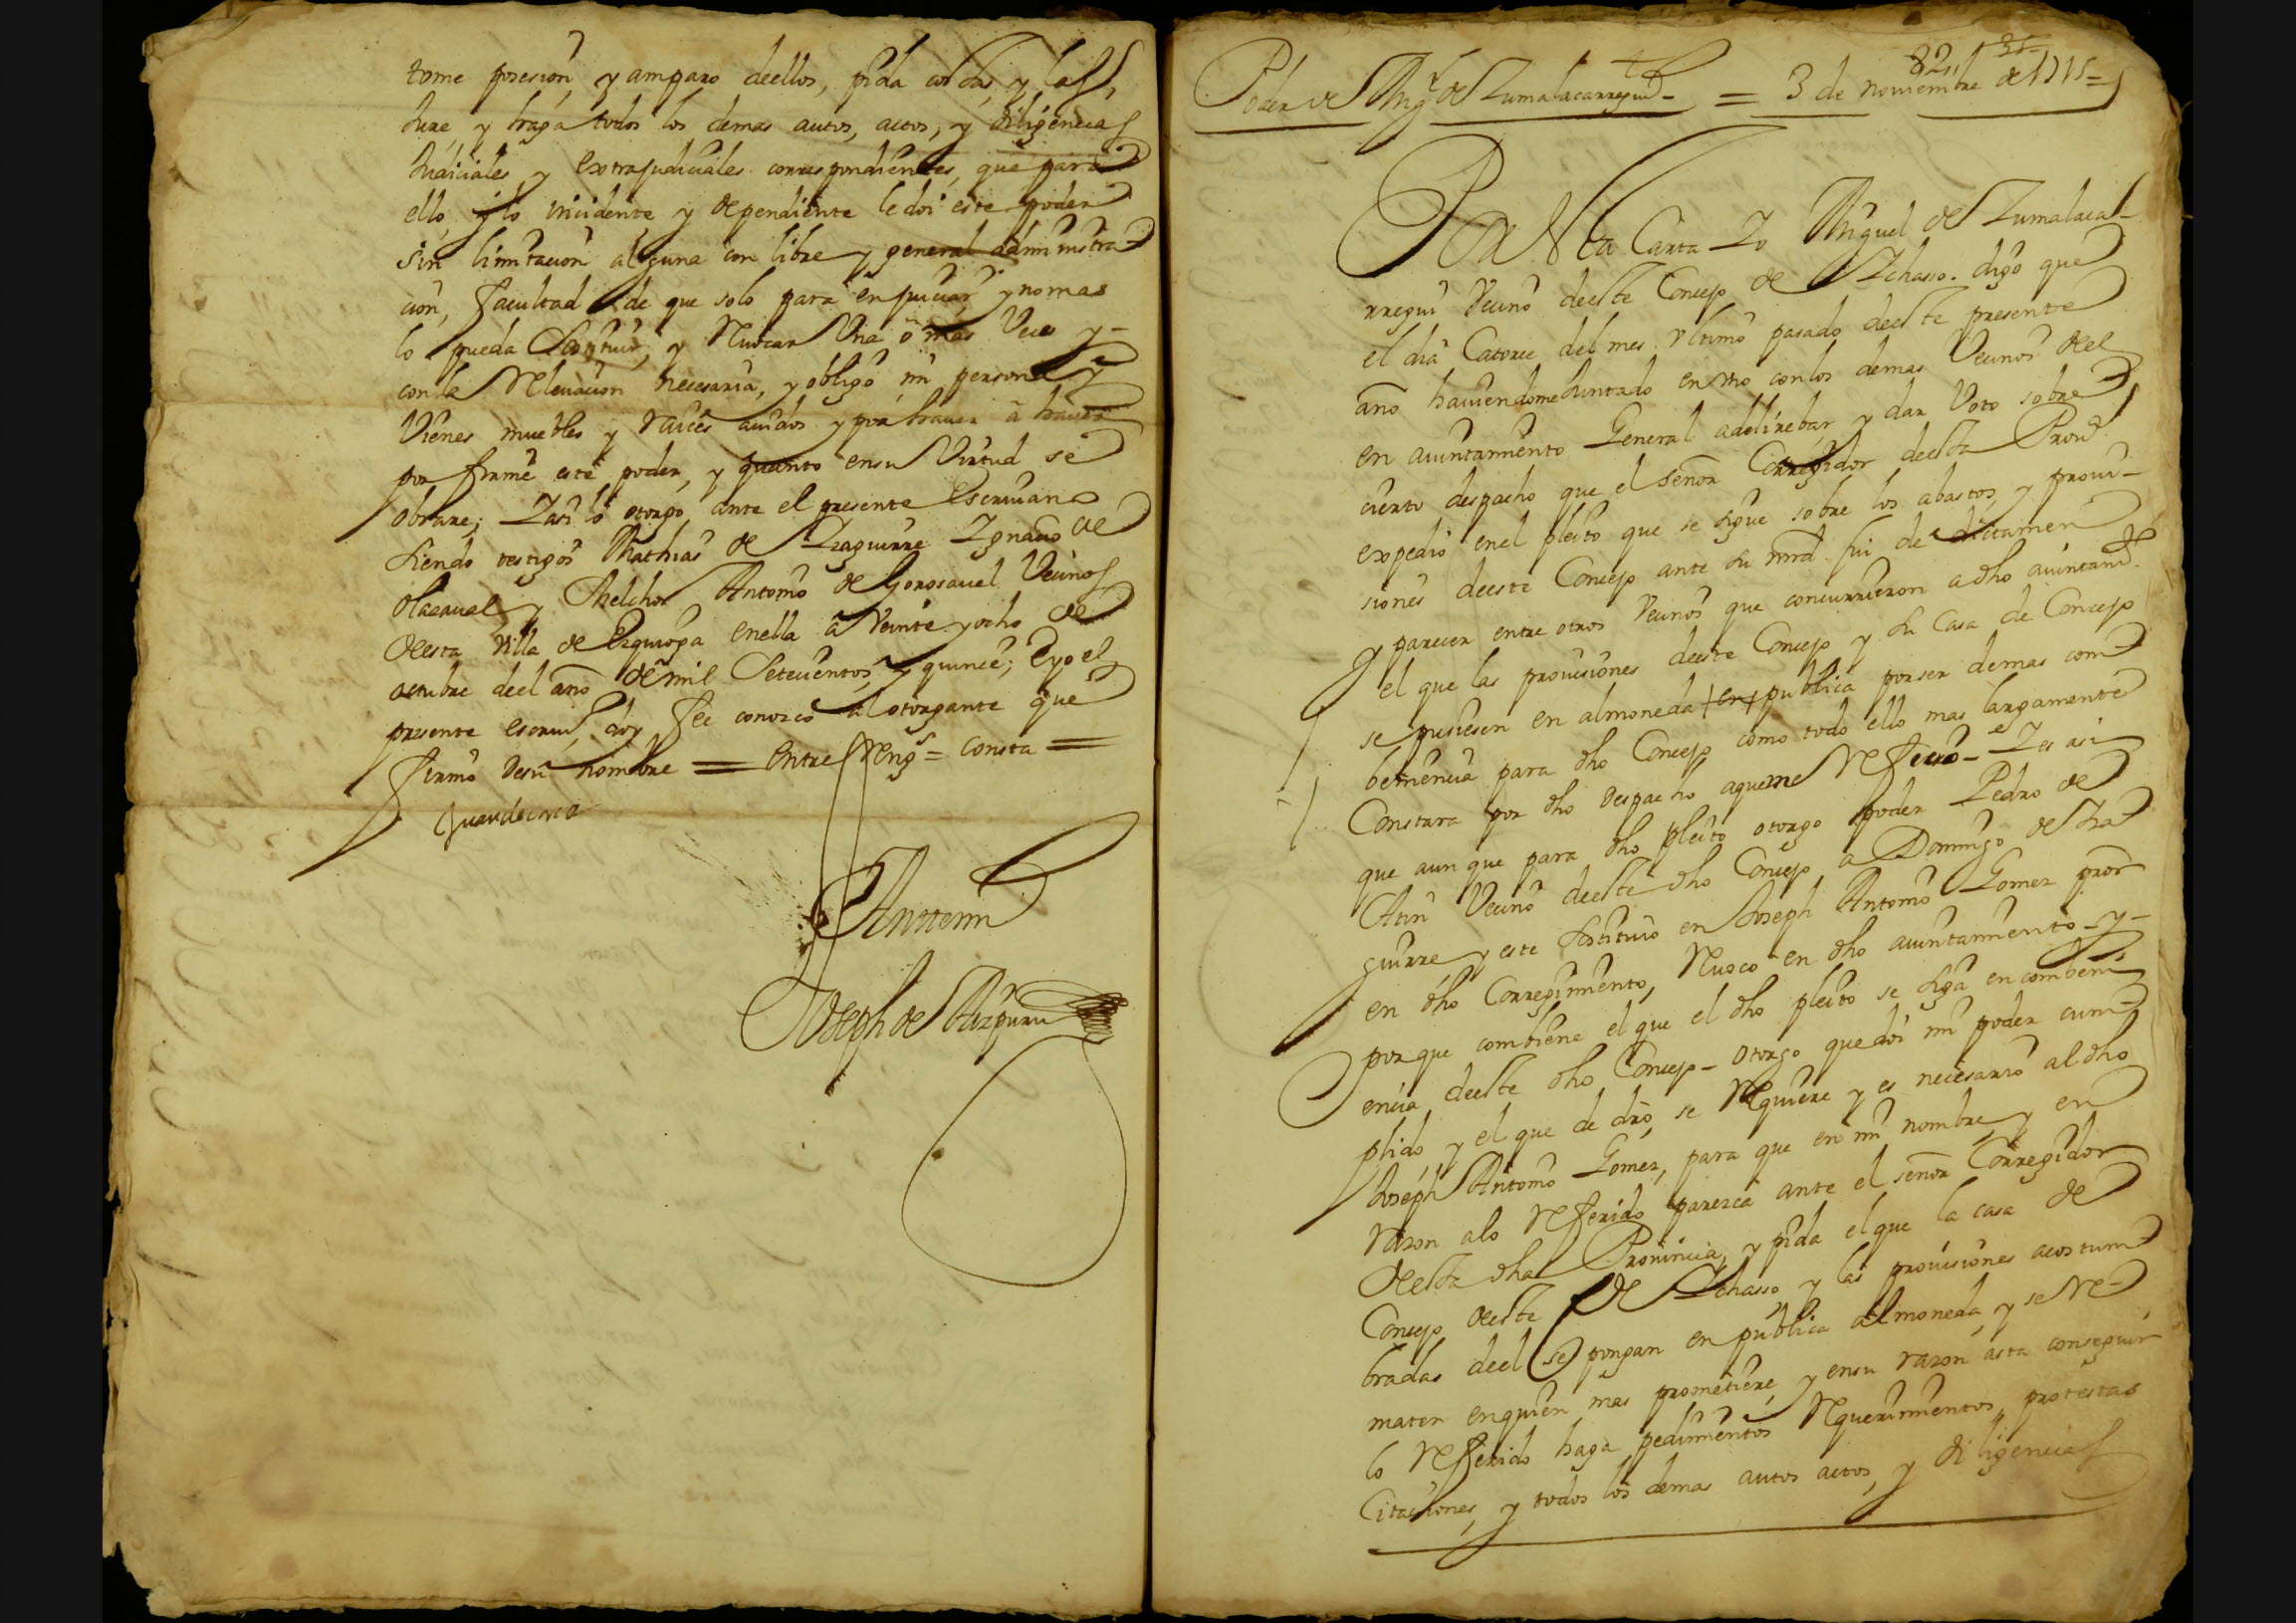 tome posesion, y amparo deellos, pida costas, y las
Jure, y haga todos los demas autos, actos, y diligencias
Judiciales, y extrajudiciales correspondientes, que para
ello, y lo incidente, y dependiente le doi este poder
sin limitacion alguna con libre y general adminnistra
cion, facultad de que solo para enjuiciar y nomas
lo pueda sostituir, y Revocar Una o mas Veces y
con la Relevacion necesaria, y obligo mi persona y
Vienes muebles y raices avidos y por haver a haver
por firme este poder, y quanto ensu Virtud se
obrare; Y asi lo otorgo ante el presente Escrivano
siendo testigos Mathias de Yzaguirre Ygnacio de
Olazaval, y Melchor Antonio de Gorosavel Vecinos
desta Villa de Ezquioga enella a Veinte y ocho de
octubre deel año de mil Setecientos, y quince; E yo el
presente escriv.º doy fee conozco al otorgante que
firmo desu nombre = entre Reng.s = consta =
Antemi
Joseph de Aizpuru
82
Poder de Mig.l de Zumalacarregui = 3 de noviembre de 1715 =
Por esta Carta Yo Miguel de Zumalaca-
rregui Vecino deeste Concejo de Ychasso. digo que
el dia Catorce del mes Ultimo pasado deeste presente
año haviendome Juntado en Uno con los demas Vecinos del
en aiuntamiento General adelirebar, y dar Voto sobre
cierto despacho que el señor Corregidor deesta Prov.ª
expedio enel pleito que se sigue sobre los abastos, y provi-
siones deeste Concejo ante su mrd. fui de dictamen
y parecer entre otros Vecinos que concurrieron a dho aiuntam.to de
el que las provisiones deeste Concejo y su Casa de Concejo
se pusiesen en almoneda en publica por ser demas com
beniencia para dho Concejo como todo ello mas largamente
Constara por dho despacho aqueme Refiero - Y es asi
que aunque para dho pleito otorgo poder Pedro de
Atin Vecino deeste dho Concejo a Domingo de Yza
guirre y este sostituio en Joseph Antonio Gomez pror
en dho Corregimiento, Revoco en dho aiuntamiento - y
porque combiene el que el dho pleito se siga en combeni
encia deeste dho Concejo - otorgo que doi mi poder cum
plido, y el que de dro, se Requiere y es necesario al dho
Joseph Antonio Gomez, para que en mi nombre, y en
razon alo Referido parezca ante el señor Corregidor
deesta dha Provincia, y pida el que la casa de
Concejo deeste de Ychasso y las provisiones acostum
bradas deel se pongan en publica almoneda, y se Re
maten enquien mas prometiere, y ensu razon asta conseguir
lo Referido haga pedimentos Requerimientos, protestas
Citaciones, y todos los demas autos actos, y diligencias